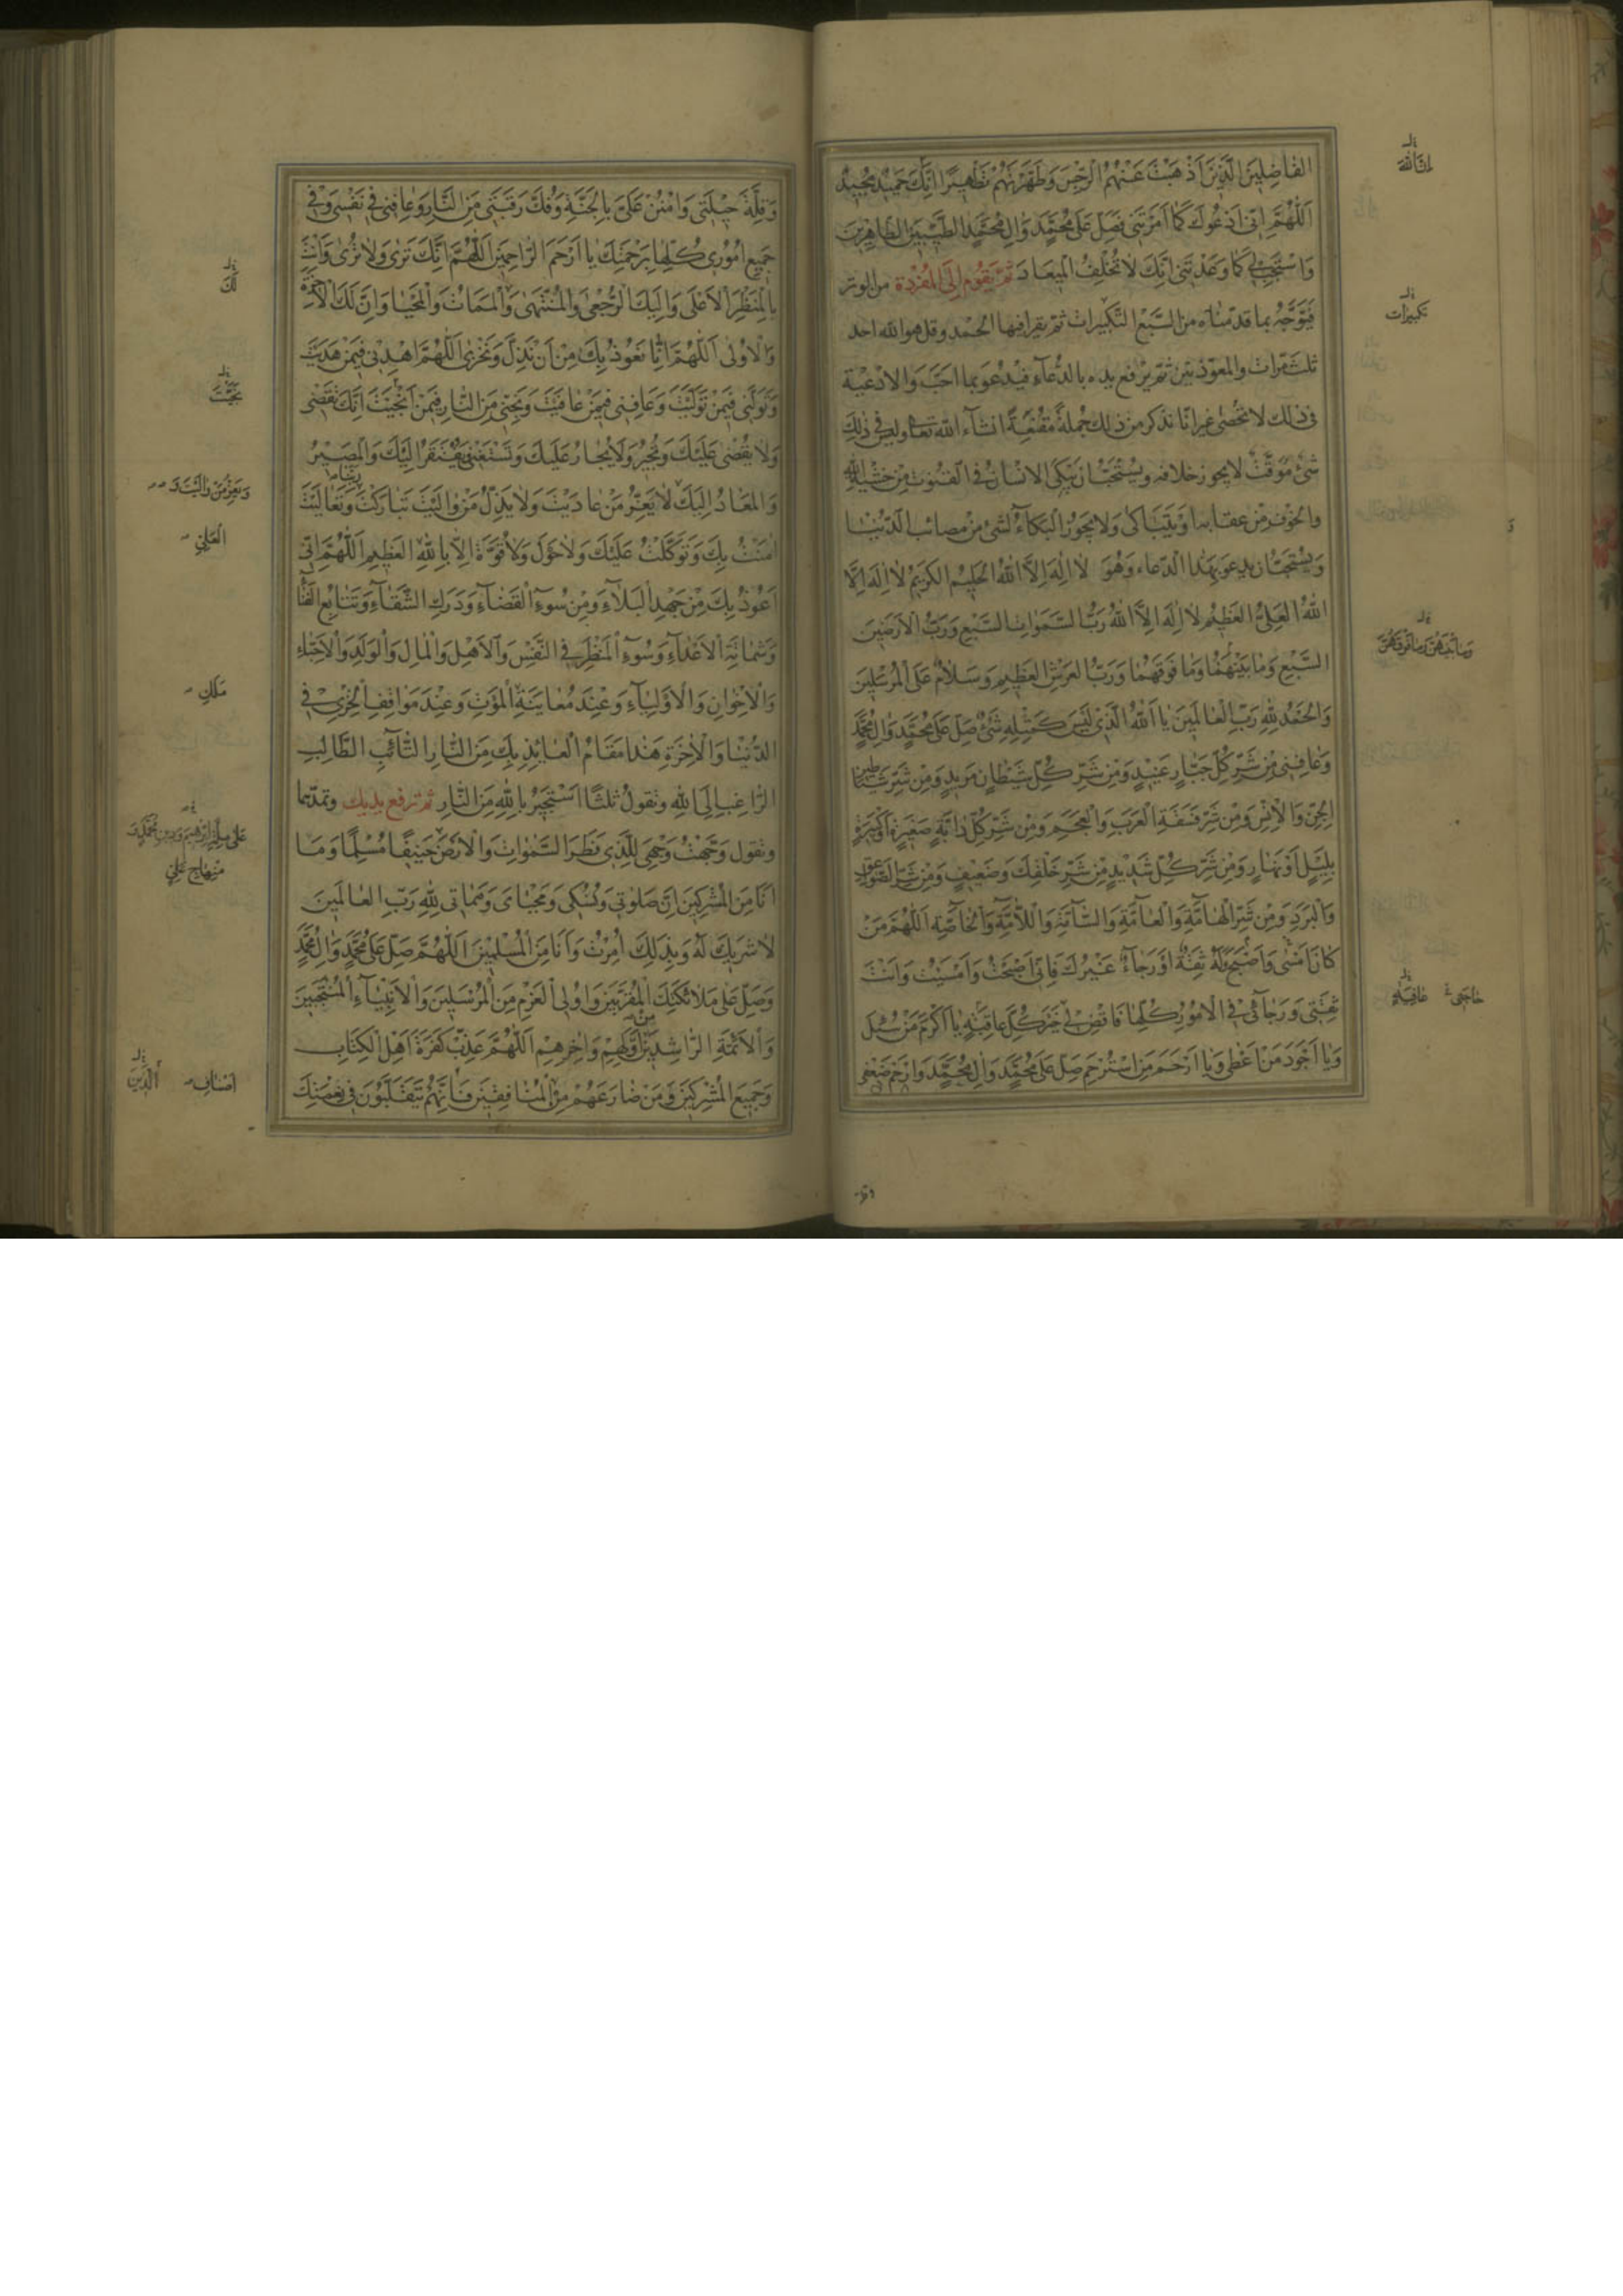 الفاضِلينَ الَّذينَ اَذْهَبْتَ عَنْهُمُ الرِّجْسَ وَطَهَّرْتَهُمْ تَطْهيرًا اِنَّكَ حَميدٌ مَجيدٌ
اَللّٰهُمَّ اِنّى اَدْعُوكَ كَما اَمَرْتَنى فَصَلِّ عَلى مُحَمَّدٍ وَالِ مُحَمَّدٍ الطَّيِّبينَ الطّاهِرينَ
وَاسْتَجِبْ لى كَما وَعَدْتَنى اِنَّكَ لا تُخْلِفُ الْميعادَ ثُمَّ يَقُومُ اِلَى الْمُفْرَدَةِ من الوتر
فَيَتَوَجَّهُ بما قدمناه من السَّبْع التَّكبيرات ثم يقرا فيها الحمد وقل هو الله احد
ثلث مرات والمعوّذتين ثم يرفع يده بالدُّعاءِ فيدعو بما احبّ والادعية
فى ذلك لا تحْصى غير انّا نذكر من ذلك جُملةً مقنعةً انشاء الله تعالى وليس فى ذلك
شئ مُوَقَّتٌ لا يجوز خلافه ويستحبّ ان يبكى الانسان فى القنوت من خشية الله
والخوف من عقابه او يتباكى ولا يجوز البكاء لشئ من مصائب الدّنيا
ويستحبّ ان يدعو بهذا الدعاء وهو لا اِلٰهَ اِلاَّ اللهُ الْحَليمُ الْكَريمُ لا اِلٰهَ اِلاَّ
اللهُ الْعَلِىُّ الْعَظيمُ لا اِلٰهَ اِلاَّ اللهُ رَبُّ السَّمٰواتِ السَّبْعِ وَرَبُّ الْاَرَضينَ
السَّبْعِ وَما بَيْنَهُما وَما فَوْقَهُما وَرَبُّ الْعَرْشِ الْعَظيمِ وَسَلامٌ عَلَى الْمُرْسَلينَ
وَالْحَمْدُ لِلّٰهِ رَبِّ الْعالَمينَ يا اَللهُ الَّذى لَيْسَ كَمِثْلِهِ شَئٌ صَلِّ عَلى مُحَمَّدٍ وَالِ مُحَمَّدٍ
وَعافِنى مِنْ شَرِّ كُلِّ جَبّارٍ عَنيدٍ وَمِنْ شَرِّ كُلِّ شَيْطانٍ مَريدٍ وَمِنْ شَرِّ شَياطينِ
الْجِنِّ وَالْاِنْسِ وَمِنْ شَرِّ فَسَقَةِ الْعَرَبِ وَالْعَجَمِ وَمِنْ شَرِّ كُلِّ دابَّةٍ صَغيرَةٍ اَوْ كَبيرَةٍ
بِلَيْلٍ اَوْ نَهارٍ وَمِنْ شَرِّ كُلِّ شَديدٍ مِنْ شَرِّ خَلْقِكَ وَضَعيفٍ وَمِنْ شَرِّ الصَّواعِقِ
وَالْبَرَدِ وَمِنْ شَرِّ الْهامَّةِ وَالْعامَّةِ وَالسّامَّةِ وَاللاّمَّةِ وَالْخاصَّةِ اَللّٰهُمَّ مَنْ
كانَ اَمْسى وَاَصْبَحَ وَلَهُ ثِقَةٌ اَوْ رَجاءٌ غَيْرُكَ فَاِنّى اَصْبَحْتُ وَاَمْسَيْتُ وَاَنْتَ
ثِقَتى وَرَجائى فِى الْاُمُورِ كُلِّها فَاقْضِ لى خَيْرَ كُلِّ عاقِبَةٍ يا اَكْرَمَ مَنْ سُئِلَ
وَيا اَجْوَدَ مَنْ اَعْطى وَيا اَرْحَمَ مَنِ اسْتُرْحِمَ صَلِّ عَلى مُحَمَّدٍ وَالِ مُحَمَّدٍ وَارْحَمْ ضَعْفى
تكبيرات
وَما بَيْنَهُنَّ وَما فَوْقَهُنَّ
حاجَتى عافِيَةٍ
وقلة
وَقِلَّةَ حيلَتى وَامْنُنْ عَلَىَّ بِالْجَنَّةِ وَفُكَّ رَقَبَتى مِنَ النّارِ وَعافِنى فى نَفْسى وَفى
جَميعِ اُمُورى كُلِّها بِرَحْمَتِكَ يا اَرْحَمَ الرّاحِمينَ اَللّٰهُمَّ اِنَّكَ تَرى وَلا تُرى وَاَنْتَ
بِالْمَنْظَرِ الْاَعْلى وَاِلَيْكَ الرُّجْعى وَالْمُنْتَهى وَالْمَماتُ وَالْمَحْيا وَاِنَّ لَكَ الْاخِرَةَ
وَالْاُولى اَللّٰهُمَّ اِنّا نَعُوذُ بِكَ مِنْ اَنْ نَذِلَّ وَنَخْزى اَللّٰهُمَّ اهْدِنى فيمَنْ هَدَيْتَ
وَتَوَلَّنى فيمَنْ تَوَلَّيْتَ وَعافِنى فيمَنْ عافَيْتَ وَنَجِّنى مِنَ النّارِ فيمَنْ اَنْجَيْتَ اِنَّكَ تَقْضى
وَلا يُقْضى عَلَيْكَ وَتُجيرُ وَلا يُجارُ عَلَيْكَ وَتَسْتَغْنى وَيُفْتَقَرُ اِلَيْكَ وَالْمَصيرُ
وَالْمَعادُ اِلَيْكَ لا يَعِزُّ مَنْ عادَيْتَ وَلا يَذِلُّ مَنْ والَيْتَ تَبارَكْتَ رَبَّنا وَتَعالَيْتَ
امَنْتُ بِكَ وَتَوَكَّلْتُ عَلَيْكَ وَلا حَوْلَ وَلا قُوَّةَ اِلاّ بِاللهِ الْعَظيمِ اَللّٰهُمَّ اِنّى
اَعُوذُ بِكَ مِنْ جَهْدِ الْبَلاءِ وَمِنْ سُوءِ الْقَضاءِ وَدَرَكِ الشَّقاءِ وَتَتابُعِ الْفَناءِ
وَشَماتَةِ الْاَعْداءِ وَسُوءِ الْمَنْظَرِ فِى النَّفْسِ وَالْاَهْلِ وَالْمالِ وَالْوَلَدِ وَالْاَحِبّاءِ
وَالْاِخْوانِ وَالْاَوْلِياءِ وَعِنْدَ مُعايَنَةِ الْمَوْتِ وَعِنْدَ مَواقِفِ الْخِزْىِ فِى
الدُّنْيا وَالْاخِرَةِ هٰذا مَقامُ الْعائِذِ بِكَ مِنَ النّارِ التّائِبِ الطّالِبِ
الرّاغِبِ اِلَى اللهِ وتقول ثلثًا اَسْتَجيرُ بِاللهِ مِنَ النّارِ ثم ترفع يديك وتمدّهما
وتقول وَجَّهْتُ وَجْهِىَ لِلَّذى فَطَرَ السَّمٰواتِ وَالْاَرْضَ حَنيفًا مُسْلِمًا وَما
اَنَا مِنَ الْمُشْرِكينَ اِنَّ صَلوتى وَنُسُكى وَمَحْياىَ وَمَماتى لِلّٰهِ رَبِّ الْعالَمينَ
لا شَريكَ لَهُ وَبِذٰلِكَ اُمِرْتُ وَاَنَا مِنَ الْمُسْلِمينَ اَللّٰهُمَّ صَلِّ عَلى مُحَمَّدٍ وَالِ مُحَمَّدٍ
وَصَلِّ عَلى مَلائِكَتِكَ الْمُقَرَّبينَ وَاُولِى الْعَزْمِ مِنَ الْمُرْسَلينَ وَالْاَنْبِياءِ الْمُنْتَجَبينَ
وَالْاَئِمَّةِ الرّاشِدينَ مِنْ اَوَّلِهِمْ وَاخِرِهِمْ اَللّٰهُمَّ عَذِّبْ كَفَرَةَ اَهْلِ الْكِتابِ
وَجَميعَ الْمُشْرِكينَ وَمَنْ ضارَعَهُمْ مِنَ الْمُنافِقينَ فَاِنَّهُمْ يَتَقَلَّبُونَ فى نِعْمَتِكَ
لَكَ
نَجَّيْتَ
الْعَلِىِّ
مَلَكِ
عَلى مِلَّةِ اِبْرٰهيمَ وَدينِ مُحَمَّدٍ وَ
مِنْهاجِ عَلِىٍّ
اَصْنافِ الَّذينَ